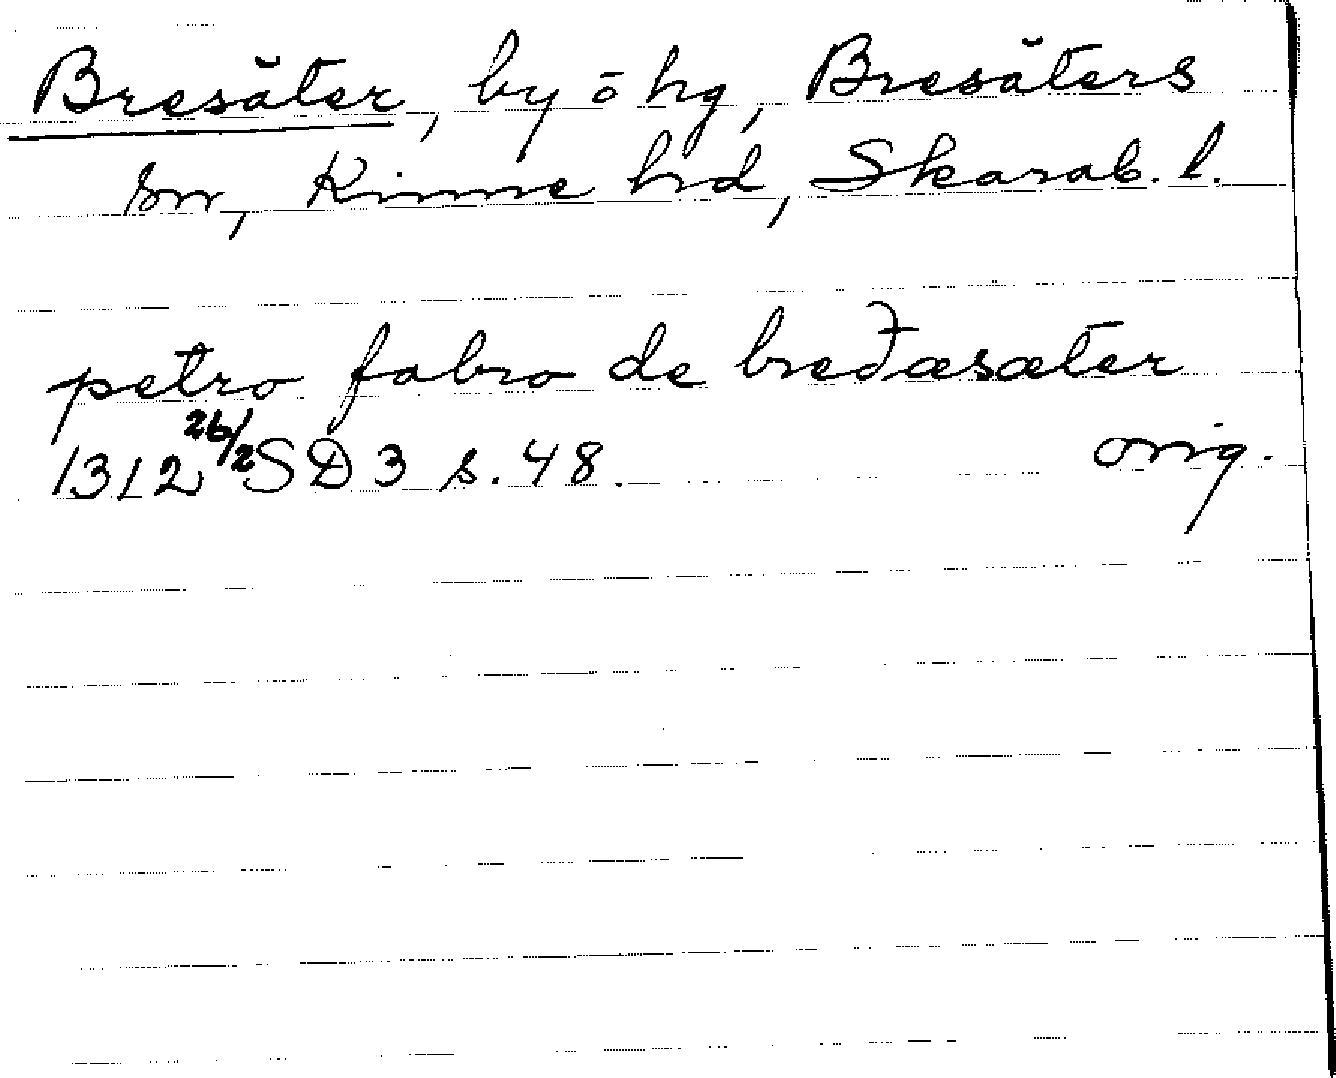 Bresäter, by o hg, Bresäters
sn, Kinne hrd, Skarab. l.
petro fabro de breðæsæter
1312 26/2 SD 3 s. 48. orig.